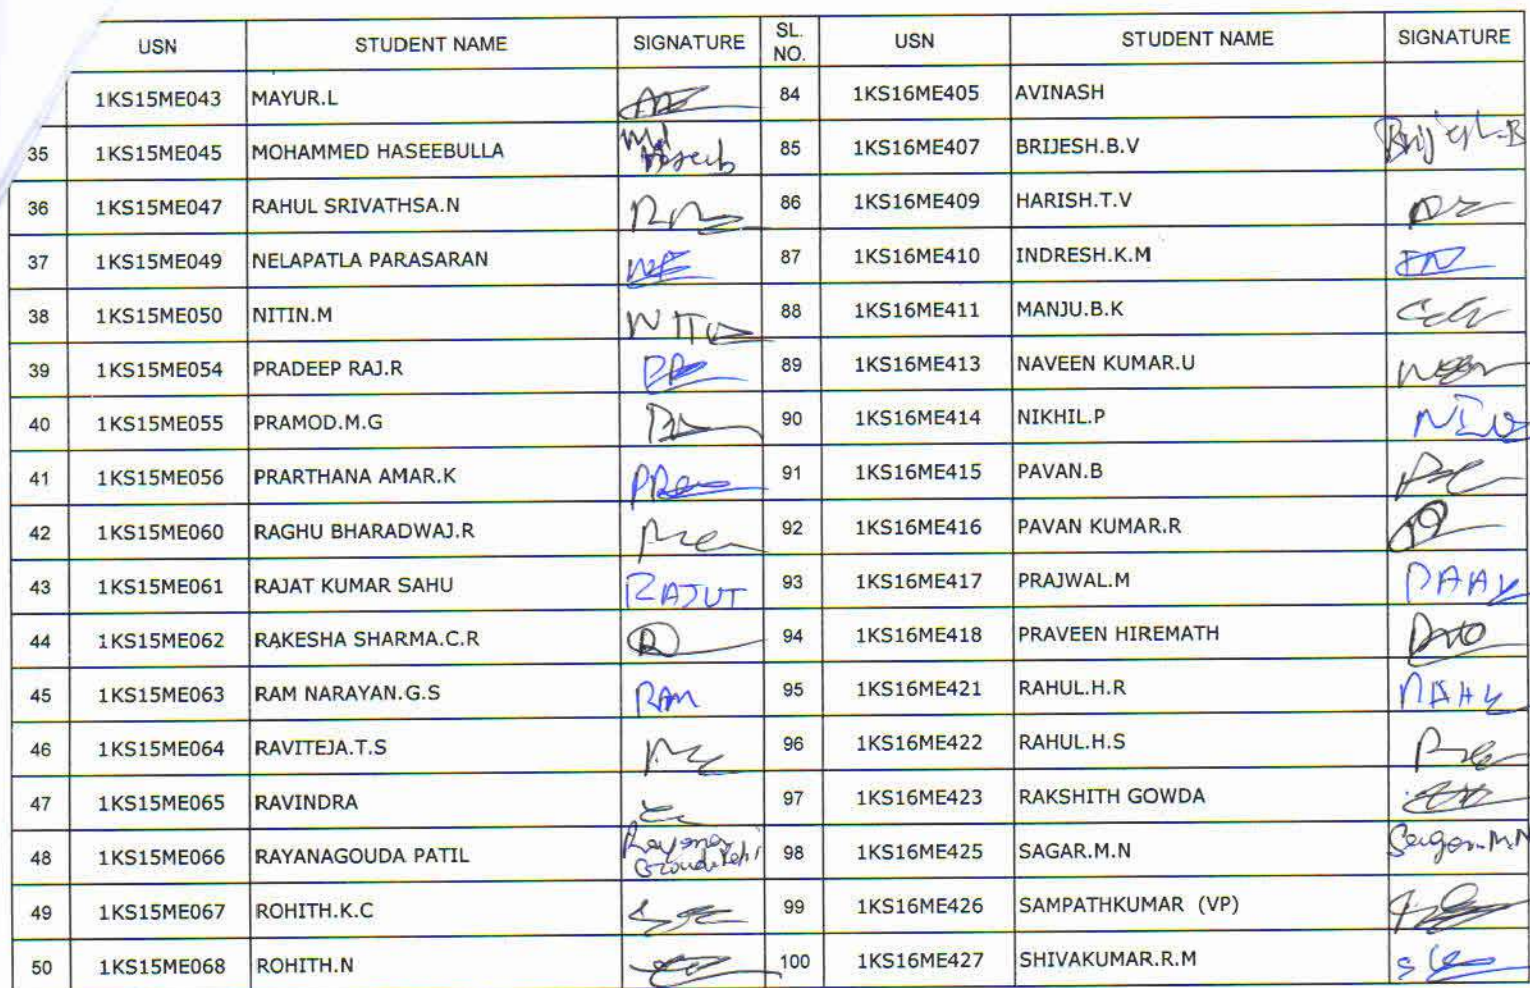 USN STUDENT NAME SIGNATURE SL. NO. USN STUDENT NAME SIGNATURE
1KS15ME043 MAYUR.L 84 1KS16ME405 AVINASH
35 1KS15ME045 MOHAMMED HASEEBULLA Md Haseeb 85 1KS16ME407 BRIJESH.B.V Brijesh-B
36 1KS15ME047 RAHUL SRIVATHSA.N 86 1KS16ME409 HARISH.T.V
37 1KS15ME049 NELAPATLA PARASARAN 87 1KS16ME410 INDRESH.K.M
38 1KS15ME050 NITIN.M 88 1KS16ME411 MANJU.B.K
39 1KS15ME054 PRADEEP RAJ.R 89 1KS16ME413 NAVEEN KUMAR.U
40 1KS15ME055 PRAMOD.M.G 90 1KS16ME414 NIKHIL.P
41 1KS15ME056 PRARTHANA AMAR.K 91 1KS16ME415 PAVAN.B
42 1KS15ME060 RAGHU BHARADWAJ.R 92 1KS16ME416 PAVAN KUMAR.R
43 1KS15ME061 RAJAT KUMAR SAHU RAJUT 93 1KS16ME417 PRAJWAL.M
44 1KS15ME062 RAKESHA SHARMA.C.R 94 1KS16ME418 PRAVEEN HIREMATH
45 1KS15ME063 RAM NARAYAN.G.S RAM 95 1KS16ME421 RAHUL.H.R
46 1KS15ME064 RAVITEJA.T.S 96 1KS16ME422 RAHUL.H.S
47 1KS15ME065 RAVINDRA 97 1KS16ME423 RAKSHITH GOWDA
48 1KS15ME066 RAYANAGOUDA PATIL 98 1KS16ME425 SAGAR.M.N Sagar.M.N
49 1KS15ME067 ROHITH.K.C 99 1KS16ME426 SAMPATHKUMAR (VP)
50 1KS15ME068 ROHITH.N 100 1KS16ME427 SHIVAKUMAR.R.M